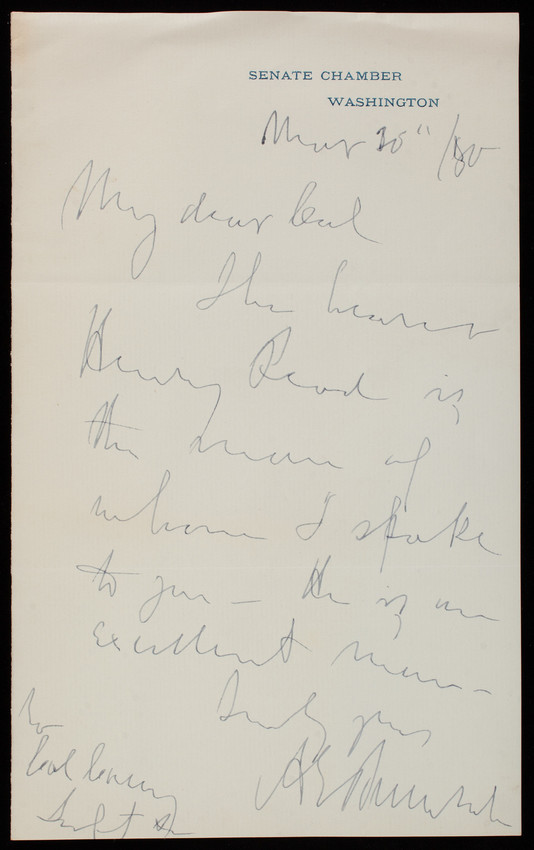 SENATE CHAMBER
WASHINGTON
Mar 10" /80
My dear Col
The bearer
Henry Read is
the man of
whom I spoke
to you — He is an
excellent man —
Truly yours
A E Burnside
To
Col Casey
Supt &c